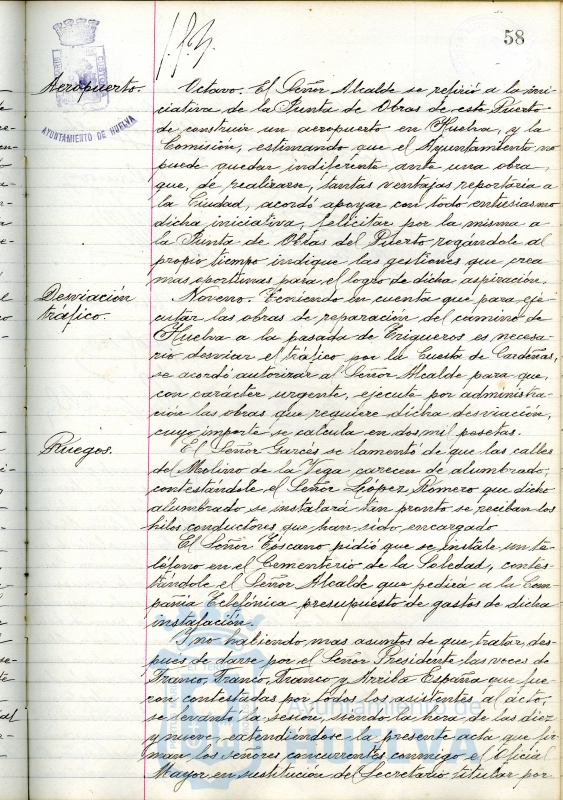 58
AYUNTAMIENTO DE HUELVA
Aeropuerto.
Octavo. El Señor Alcalde se refirió a la ini-
ciativa de la Junta de Obras de este Puerto
de construir un aeropuerto en Huelva, y la
Comisión, estimando que el Ayuntamiento no
puede quedar indiferente ante una obra,
que, de realizarse, tantas ventajas reportaría a
la Ciudad, acordó apoyar con todo entusiasmo
dicha iniciativa, felicitar por la misma a
la Junta de Obras del Puerto rogándole al
propio tiempo indique las gestiones que crea
mas oportunas para el logro de dicha aspiración.
Desviación
tráfico.
Noveno. Teniendo en cuenta que para eje-
cutar las obras de reparación del camino de
Huelva a la pasada de Trigueros es necesa-
rio desviar el tráfico por la Cuesta de Cardeñas,
se acordó autorizar al Señor Alcalde para que,
con carácter urgente, ejecute por administra-
ción las obras que requiere dicha desviación,
cuyo importe se calcula en dos mil pesetas.
Ruegos.
El Señor Garcés se lamentó de que las calles
del Molino de la Vega carecen de alumbrado,
contestándole el Señor López Romero que dicho
alumbrado se instalará tan pronto se reciban los
hilos conductores que han sido encargado
El Señor Toscano pidió que se instale un te-
léfono en el Cementerio de la Soledad, contes-
tándole el Señor Alcalde que pedirá a la Com-
pañia Telefónica presupuesto de gastos de dicha
instalación.
Y no habiendo mas asuntos de que tratar, des-
pués de darse por el Señor Presidente las voces de
Franco, Franco, Franco y Arriba España que fue-
ron contestadas por todos los asistentes al acto,
se levantó la sesión, siendo la hora de las diez
y nueve, extendiéndose la presente acta que fir-
man los señores concurrentes conmigo el Oficial
Mayor en sustitución de Secretario titular por
Ayuntamiento de
HUELVA